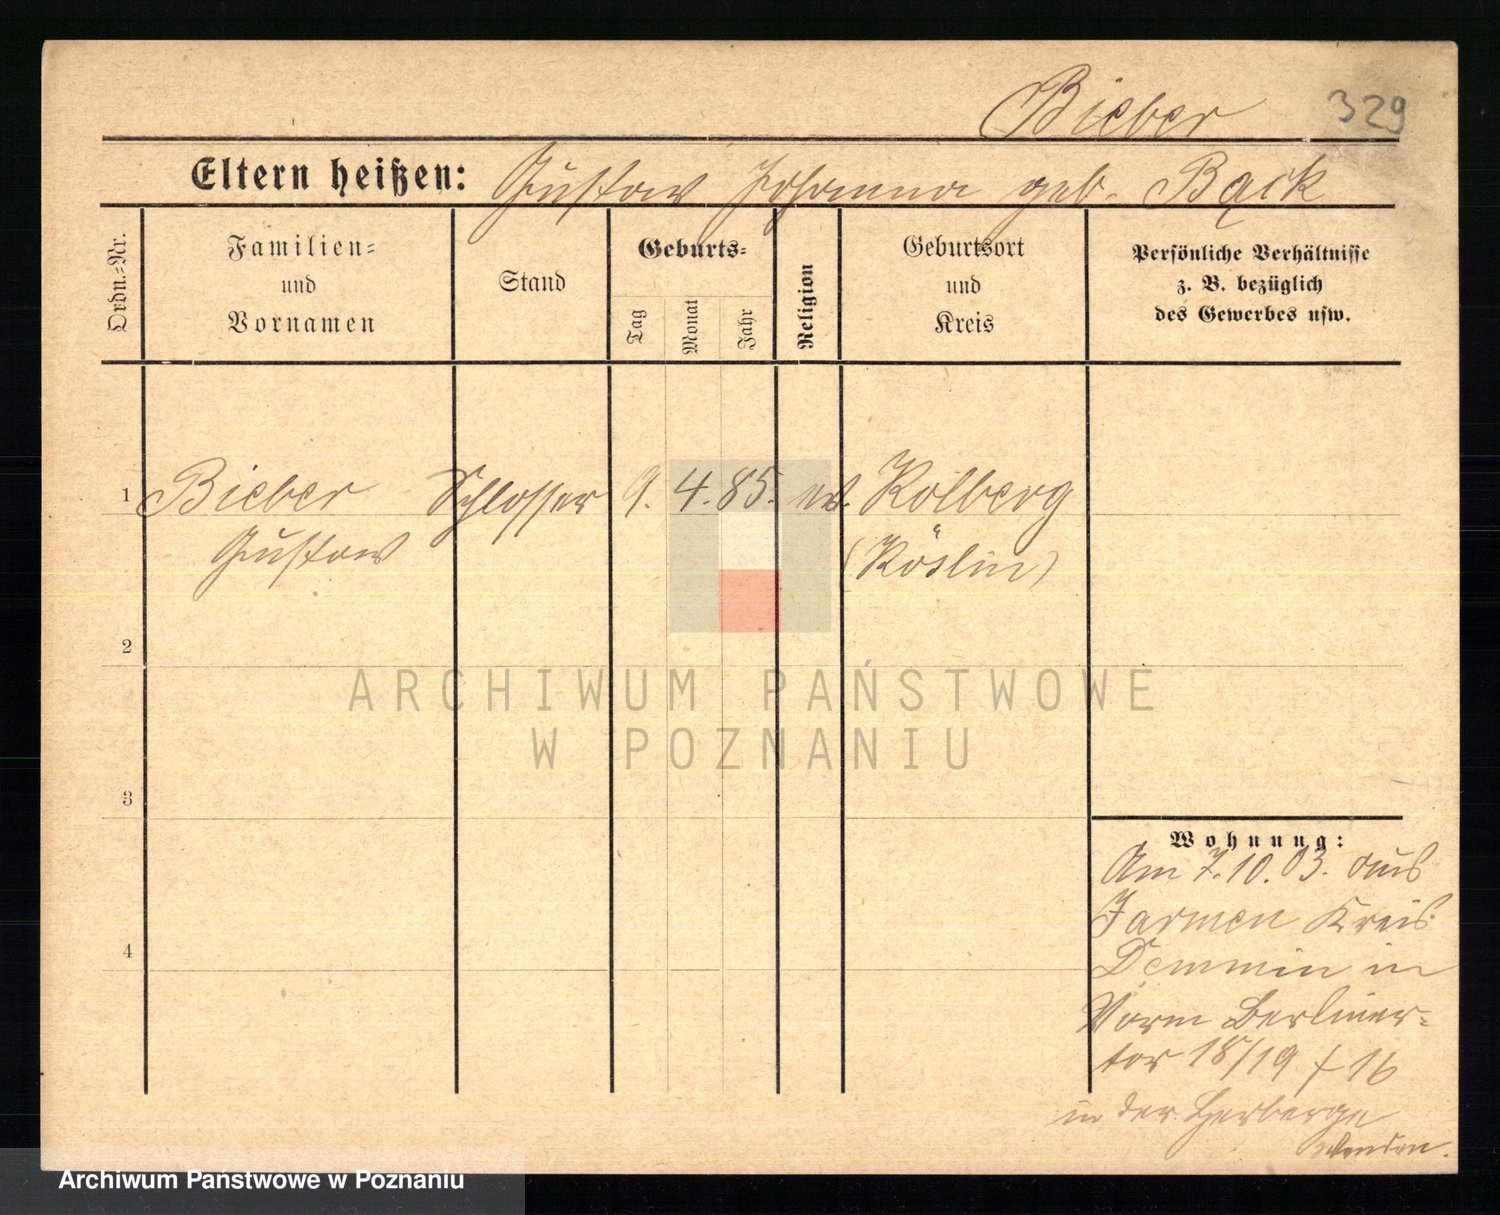 Bieber 329
Eltern heißen: Gustav Johanna geb. Back
Ordn.=Nr.
Familien=
und
Vornamen
Stand
Geburts=
Tag
Monat
Jahr
Religion
Geburtsort
und
Kreis
Persönliche Verhältnisse
z. B. bezüglich
des Gewerbes usw.
1 Bieber Schlosser 9. 4. 85. ev. Kolberg
Gustav (Köslin)
2
ARCHIWUM PAŃSTWOWE
W POZNANIU
3
Wohnung:
Am 7.10.03. aus
Jarmen Kreis
Demmin in
Berliner=
tor 18/19 16
in der Herberge
wenden.
4
Archiwum Państwowe w Poznaniu